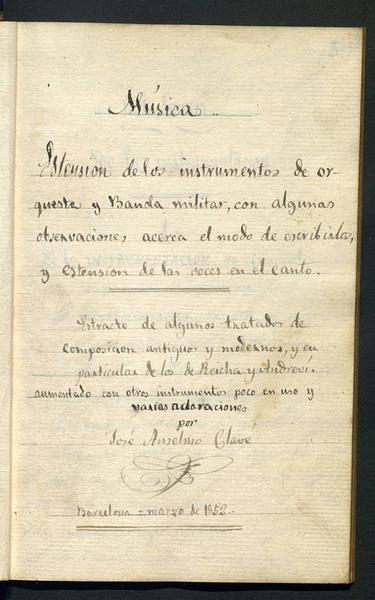 Música..
Estension de los instrumentos de or-
questa y Banda militar, con algunas
observaciones acerca el modo de escribirlos,
y estension de las voces en el canto.
Estracto de algunos tratados de
composicion antiguos y modernos, y en
particular de los de Reicha y Andreví.
aumentado con otros instrumentos poco en uso y
varias aclaraciones
por
José Anselmo Clavé
Barcelona = marzo de 1852..